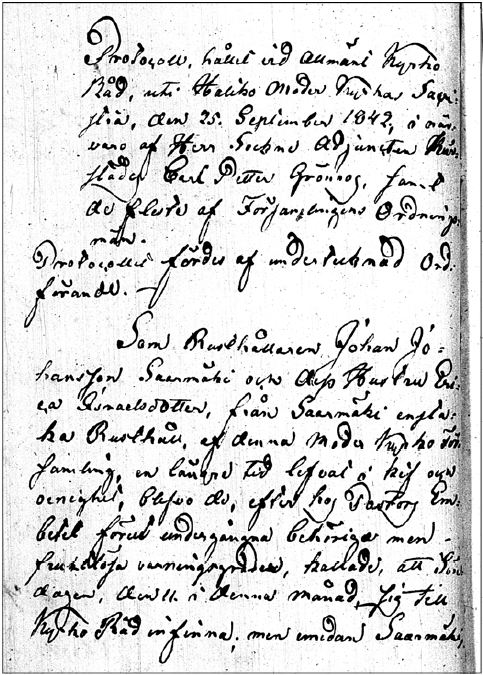 Protocoll, hållet vid Allmänt Kyrko
Råd, uti Haliko Moder Kyrkas Sacri-
stia, den 25. September 1842, i när-
varo af Herr Sockne Adjuncten
Carl Petter Grönroos, samt
de fleste af Församlingens Ordnings
män.
Protocollet fördes af undertecknad Ord-
förande.
Som Rusthållaren Johan Jo-
hansson Saarmäki och dess Hustru Eri-
ca Ismaelsdotter, från Saarmäki ensta-
ka Rusthåll, af denna Moder Kyrko För-
samling, en längre tid lefvat i kif och
oenighet, blefvo de, efter hos Pastors Em-
betet förut undergångna behöriga men
fruktlösa varningsgrader, kallade, att Sön-
dagen, den 11. i denna månad, sig till
Kyrko Råd infinna; men emedan Saarmäki,